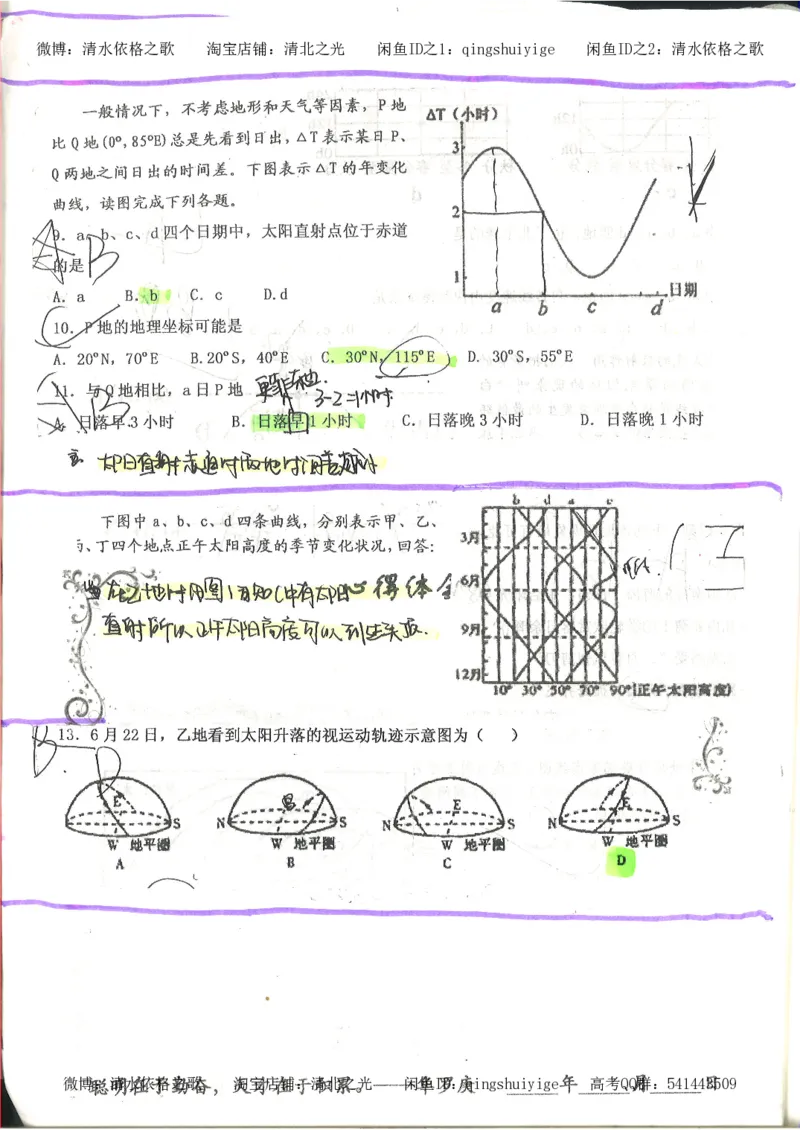 微博：清水依格之歌 淘宝店铺：清北之光 闲鱼ID之1：qingshuiyige 闲鱼ID之2：清水依格之歌
一般情况下，不考虑地形和天气等因素，P地
比Q地(0°,85°E)总是先看到日出，ΔT表示某日P、
Q两地之间日出的时间差。下图表示ΔT的年变化
曲线，读图完成下列各题。
ΔT（小时）
3
2
1
a b c d
日期
9．a、b、c、d四个日期中，太阳直射点位于赤道
的是
B
A．a B．b C．c D.d
10．P地的地理坐标可能是
A．20°N，70°E B.20°S，40°E C．30°N，115°E D．30°S，55°E
11．与Q地相比，a日P地
3-2=1小时
B
A．日落早3小时 B．日落早1小时 C．日落晚3小时 D．日落晚1小时
下图中a、b、c、d四条曲线，分别表示甲、乙、
、丁四个地点正午太阳高度的季节变化状况，回答：
心得体会
直射所以正午太阳高度可以到达
b d a c
3月
6月
9月
12月
10° 30° 50° 70° 90°(正午太阳高度)
13．6月22日，乙地看到太阳升落的视运动轨迹示意图为（ ）
D
E S W 地平圈
A
N S W 地平圈
B
N E S W 地平圈
C
N E S W 地平圈
D
微博：清水依格之歌 淘宝店铺：清北之光 闲鱼ID：qingshuiyige 高考QQ群：541442509
聪明在于勤奋，天才在于积累。——华罗庚 年 月 日